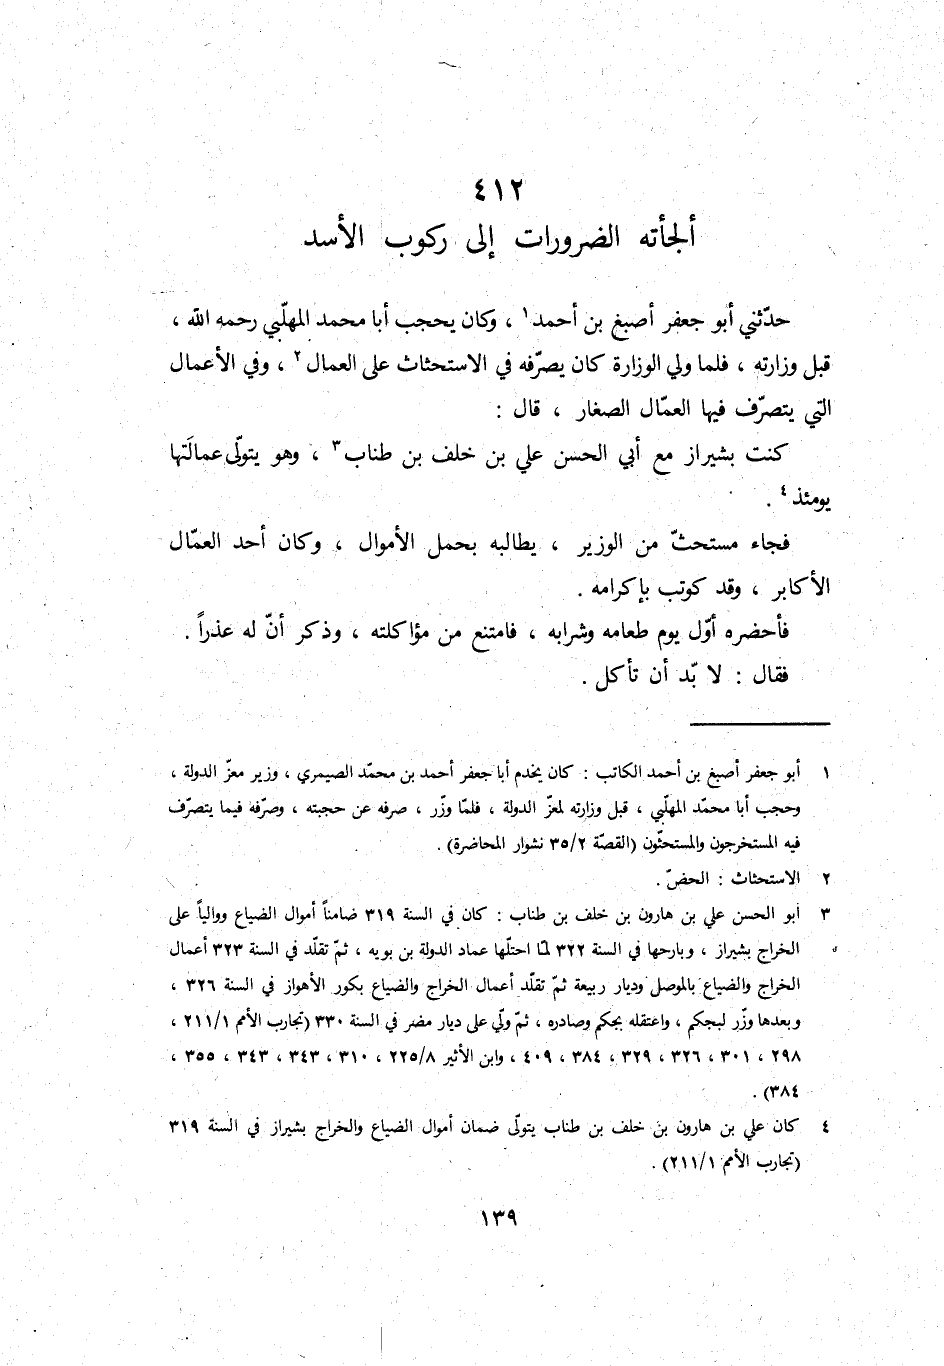 ٤١٢
ألجأته الضرورات إلى ركوب الأسد
حدّثني أبو جعفر أصبغ بن أحمد١ ، وكان يحجب أبا محمد المهلّبي رحمه الله ،
قبل وزارته ، فلما ولي الوزارة كان يصرّفه في الاستحثاث على العمال٢ ، وفي الأعمال
التي يتصرّف فيها العمّال الصغار ، قال :
كنت بشيراز مع أبي الحسن علي بن خلف بن طناب٣ ، وهو يتولّى عمالَتها
يومئذ٤ .
فجاء مستحثّ من الوزير ، يطالبه بحمل الأموال ، وكان أحد العمّال
الأكابر ، وقد كوتب بإكرامه .
فأحضره أوّل يوم طعامه وشرابه ، فامتنع من مؤاكلته ، وذكر أنّ له عذراً .
فقال : لا بّد أن تأكل .
١ أبو جعفر أصبغ بن أحمد الكاتب : كان يخدم أبا جعفر أحمد بن محمّد الصيمري ، وزير معزّ الدولة ،
وحجب أبا محمّد المهلّبي ، قبل وزارته لمعزّ الدولة ، فلمّا وزّر ، صرفه عن حجبته ، وصرّفه فيما يتصرّف
فيه المستخرجون والمستحثّون (القصّة ٣٥/٢ نشوار المحاضرة) .
٢ الاستحثاث : الحضّ .
٣ أبو الحسن علي بن هارون بن خلف بن طناب : كان في السنة ٣١٩ ضامناً أموال الضياع ووالياً على
الخراج بشيراز ، وبارحها في السنة ٣٢٢ لمّا احتلّها عماد الدولة بن بويه ، ثمّ تقلّد في السنة ٣٢٣ أعمال
الخراج والضياع بالموصل وديار ربيعة ثمّ تقلّد أعمال الخراج والضياع بكور الأهواز في السنة ٣٢٦ ،
وبعدها وزّر لبجكم ، واعتقله بجكم وصادره ، ثمّ ولّي على ديار مضر في السنة ٣٣٠ (تجارب الأمم ٢١١/١ ،
٢٩٨ ، ٣٠١ ، ٣٢٦ ، ٣٢٩ ، ٣٨٤ ، ٤٠٩ ، وابن الأثير ٢٢٥/٨ ، ٣١٠ ، ٣٤٣ ، ٣٤٣ ، ٣٥٥ ،
٣٨٤) .
٤ كان علي بن هارون بن خلف بن طناب يتولّى ضمان أموال الضياع والخراج بشيراز في السنة ٣١٩
(تجارب الأمم ٢١١/١) .
١٣٩